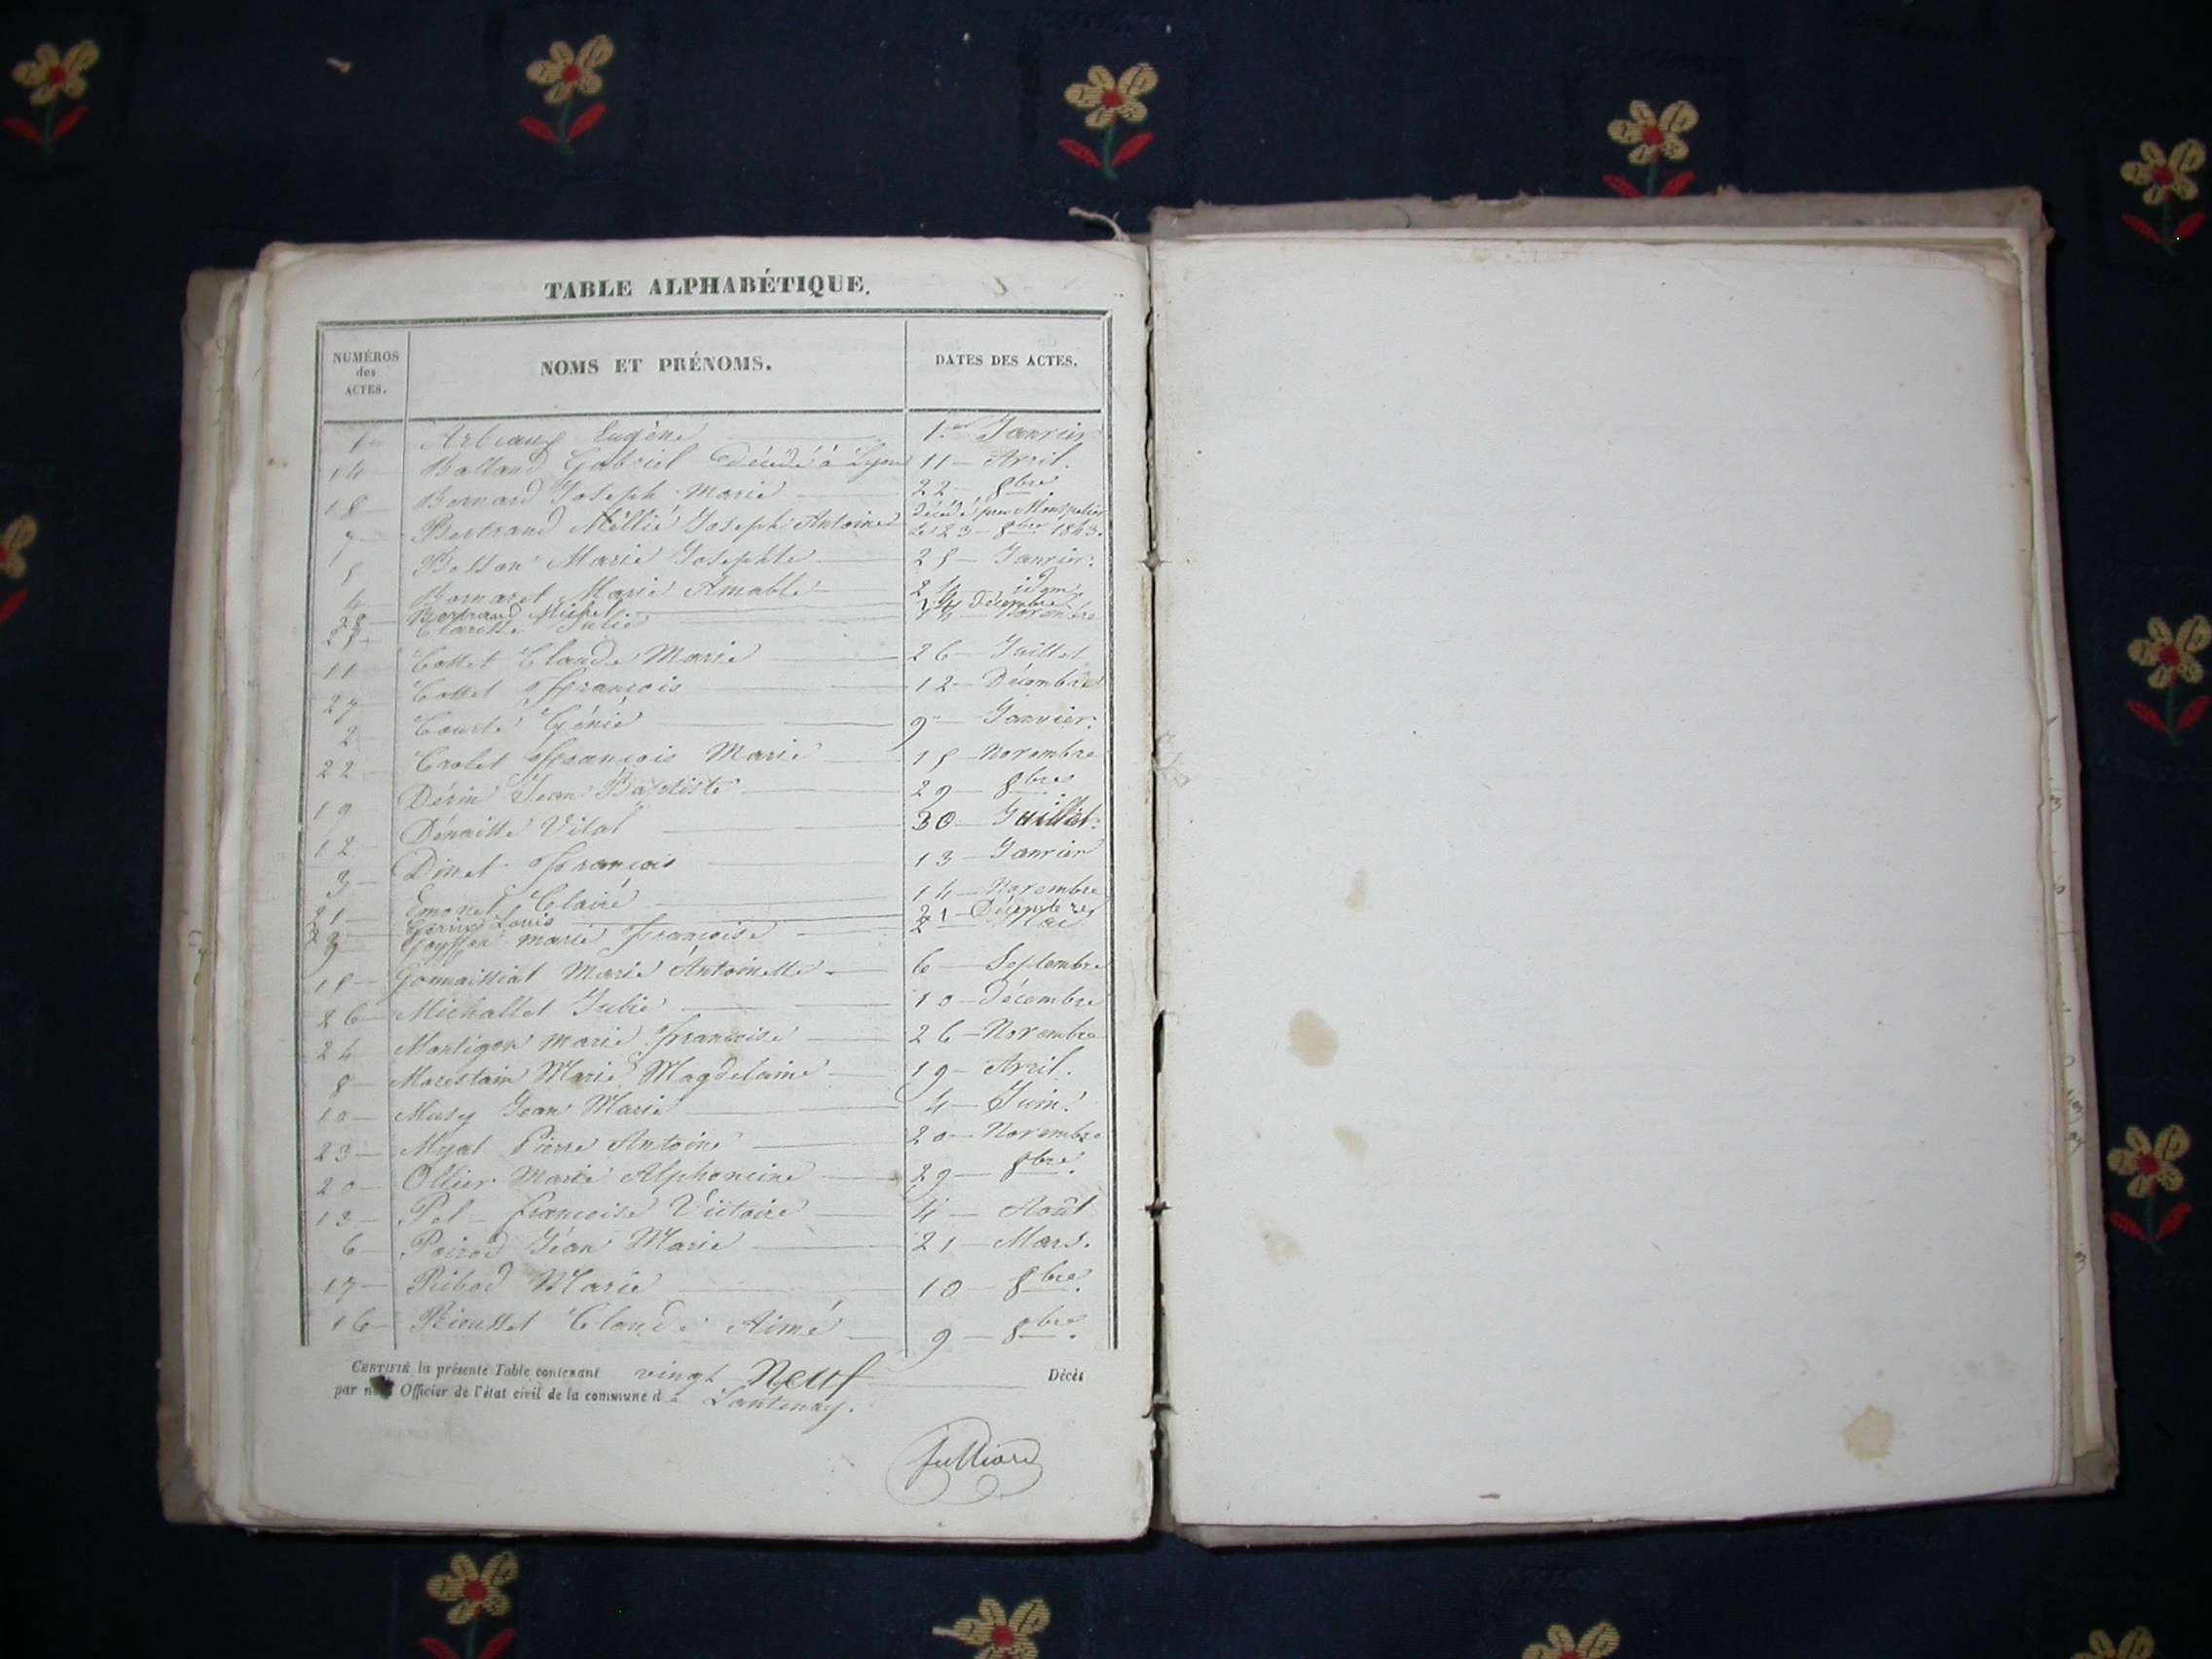 TABLE ALPHABÉTIQUE.
NUMÉROS des ACTES. NOMS ET PRÉNOMS. DATES DES ACTES.
1er Arbeaux Eugène 1.er Janvier
14 Balland Gabriel décédé à Lyon 11 Avril.
18 Bernard Joseph Marie 22 8bre
7 Bertrand Joseph Antoine décédé près Montpelier le 23 8bre 1843.
5 Marie Josephte 25 Janvier.
4 Bornaret Marie Amable 24 idem.
28 Bertrand Michel 14 décembre
25 Julie Novembre
11 Cottet Claude Marie 26 Juillet
27 Cottet François 12 Décembre
2 Génie 9 Janvier.
22 Crolet François Marie 15 Novembre
19 Dérin Jean Baptiste 29 8bre
12 Vital 30 Juillet.
3 Dinet François 13 Janvier
21 Emonet Claire 14 Novembre
Louis 21 Décembre
9 Marie Françoise 2 Mai
15 Gonnaissiat Marie Antoinette 6 Septembre
26 Michallet Julie 10 Décembre
24 Marie Françoise 26 Novembre
8 Marestain Marie Magdelaine 19 Avril.
10 Musy Jean Marie 4 Juin.
23 Myat Pierre Antoine 20 Novembre
20 Ollier Marie Alphoncine 29 8bre.
13 Pel Françoise Victoire 4 Août
6 Jean Marie 21 Mars.
17 Ribod Marie 10 8bre.
16 Rioussel Claude Aimé 9 8bre.
CERTIFIÉ la présente Table contenant vingt Neuf Décès
par nous Officier de l'état civil de la commune de Lantenay.
Julliard